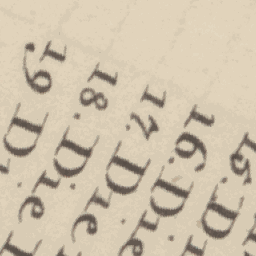 15. D
16. Die
17. Die
18. Die
19. Die